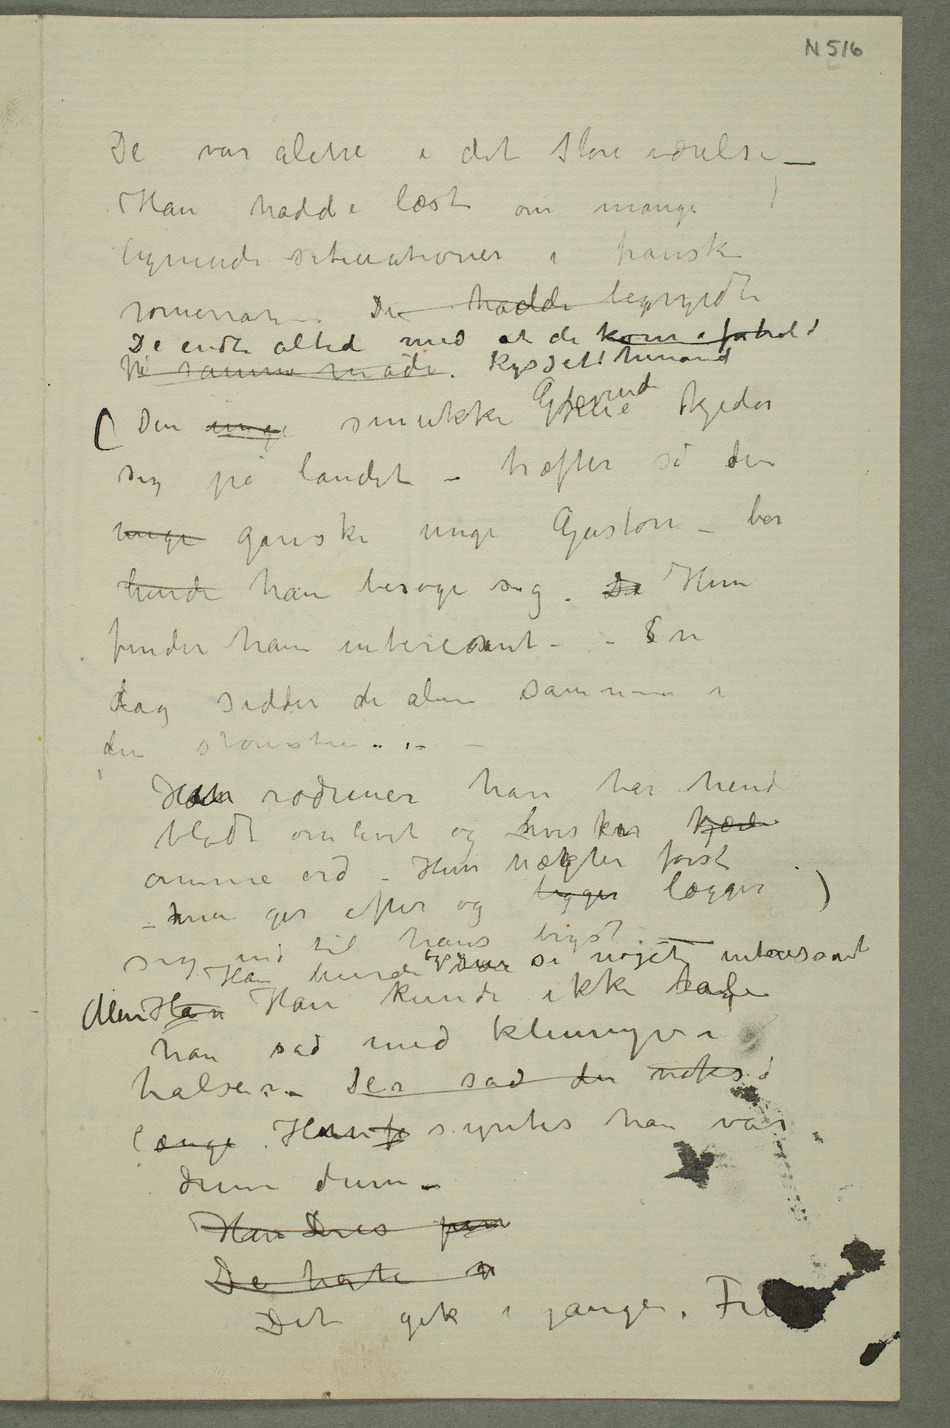 N 516
De var alene i det store værelse –
Han hadde læst om mange
lignende situationer i franske
romerran. De hadde begyndt
De endte altid med at de kom i forhold
på samme måde. kysset hinand
(Den unge smukke Grevinde kjeder
sig på landet – træffer så den
unge ganske unge Gaston – ber
hende han besøge sig. De Hun
finder ham interesant – – En
dag sidder de alene sammen i
den
Han rødmer han tar hend
blødt om livet og hvisker kjærl
ømme ord – Hun nægter først
– men ger efter og ligger lægger )
sig ind til hans bryst –
Han burde sige så noget interessant
Men Han Han kunde ikke tale
han sad med klump i
halsen – Der sad de noks
længe. Han f syntes han var
dum dum –
Han
De
Det gik i gange.